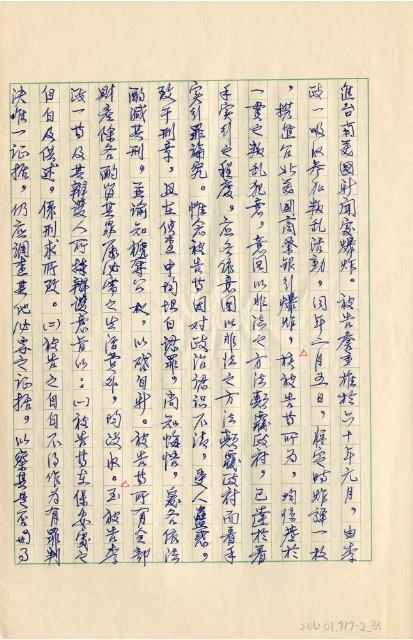 進台南美國新聞處爆炸。被告詹重雄於六十年元月,由李
政一吸收參加叛亂活動,同年二月五日,將定時炸彈一枚
,携進台北美國商業銀行爆炸,核被告等所為,均係基於
一貫之叛亂犯意,意圖以非法之方法顛覆政府,已達於着
手實行之程度,應各依意圖以非法之方法顛覆政府而着手
實行罪論處。惟念被告等因對政治認識不清,受人蠱惑,
致干刑章,且在偵查中均坦白認罪,尚知悔悟,爰各依法
酌減其刑,並諭知褫奪公權,以啟自新。被告等所有全部
財產除各酌留其家屬必需之生活費外,均沒收。至被告李
政一等及其辯護人所持辯護意旨以:㈠被告等在保安處之
自白及供述,係刑求所致。㈡被告之自白不得作為有罪判
決唯一証據,仍應調查其他必要之証據,以察其是否與事
2060.01.717-2_33